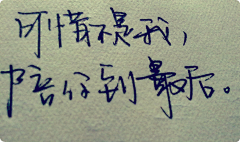 可惜不是我，
陪你到最后。